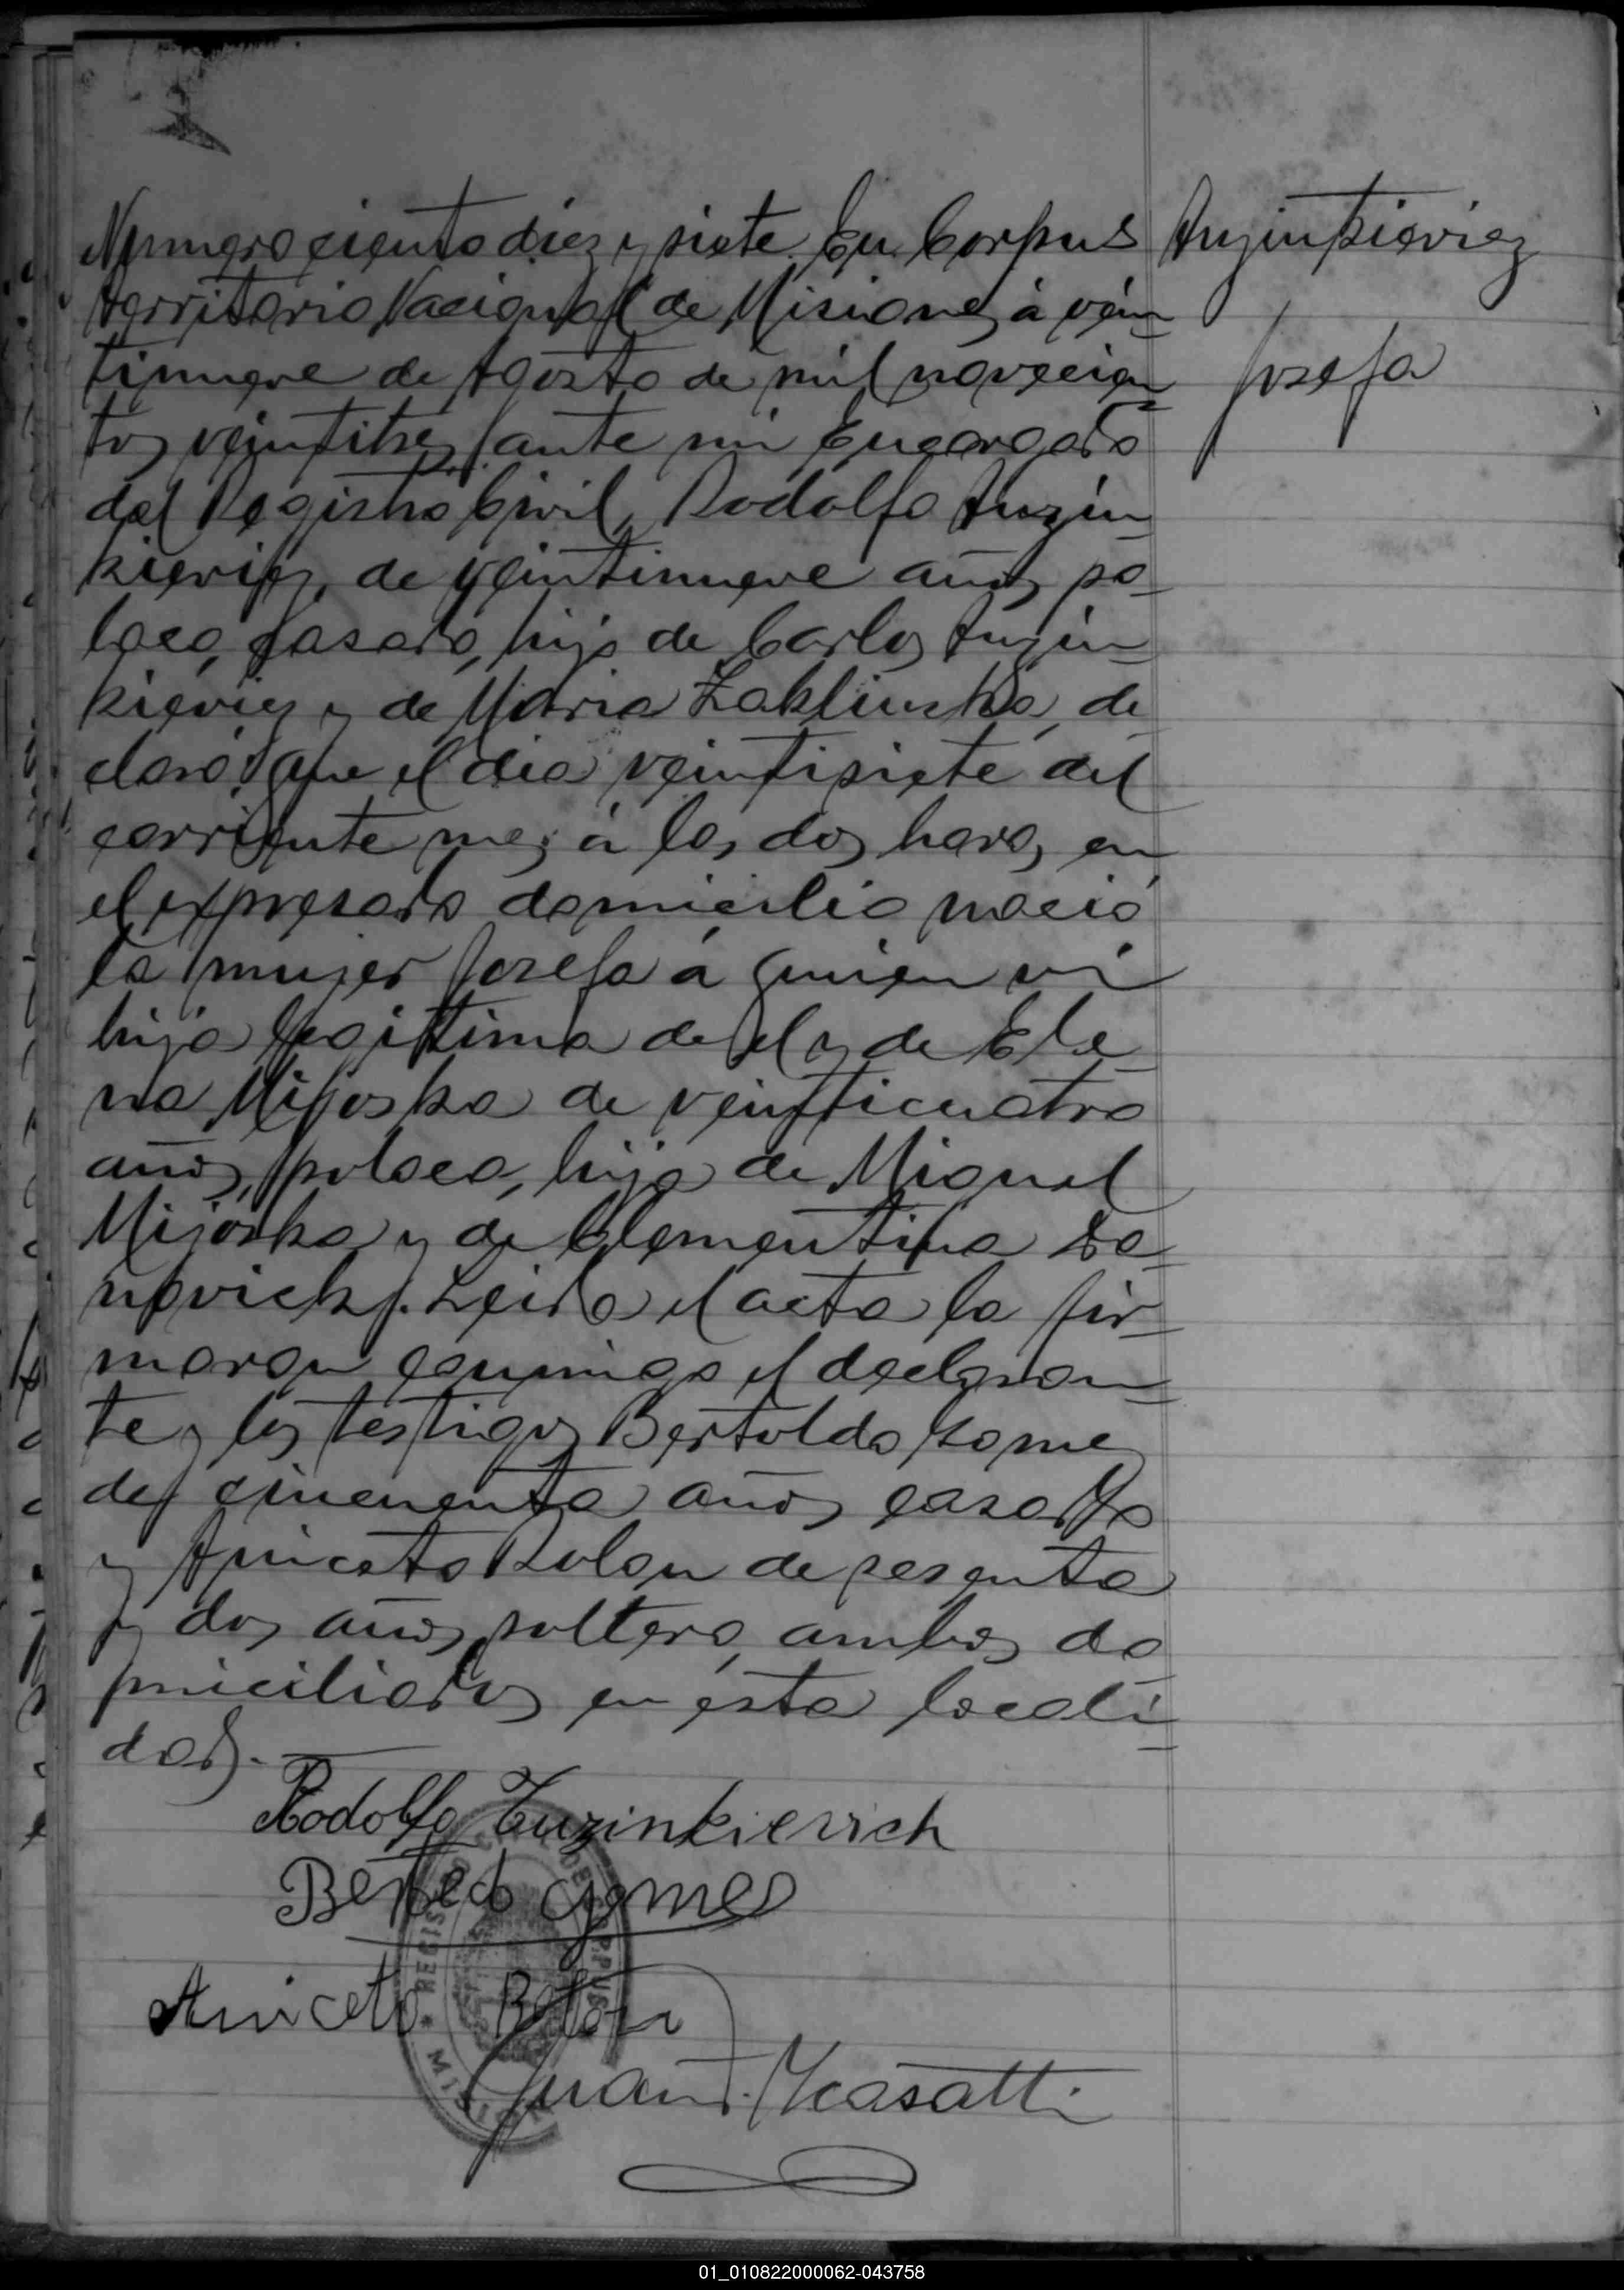 Numero ciento diez y siete. En Corpus
Auzinkieviez
Territorio Nacional de Misiones, à vein-
tinueve de Agosto de mil novecien-
Josefa
tos veintitres, ante mi Encargado
del Registro Civil, Rodolfo Auzin-
kieviez, de veintinueve años, po-
laco, casado, hijo de Carlos Auzin-
kieviez y de Maria Zaklinska, de-
claró: Que el dia veintisiete del
corriente mes à las dos horas, en
el expresado domicilio nació
la mujer Josefa à quien vi
hija legitima de él y de Ele-
na Mijoska de veinticuatro
años, polaca, hija de Miguel
Mijoska y de Clementina
Leida el acta la fir-
maron conmigo el declaran-
te y los testigos Bertoldo Gomes
de cincuenta años, casado
y Aniceto Rolon de sesenta
y dos años, soltero, ambos do
miciliados en ésta locali-
dad.-
Rodolfo Tuzinkievich
Gomes
Aniceto
Juan
REGISTRO DE CORPUS
* MISIONES
01_010822000062-043758